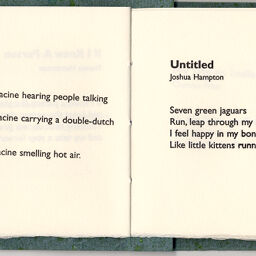 hearing people talking
carrying a double-dutch
smelling hot air.
Untitled
Joshua Hampton
Seven green jaguars
Run, leap through my
I feel happy in my
Like little kittens